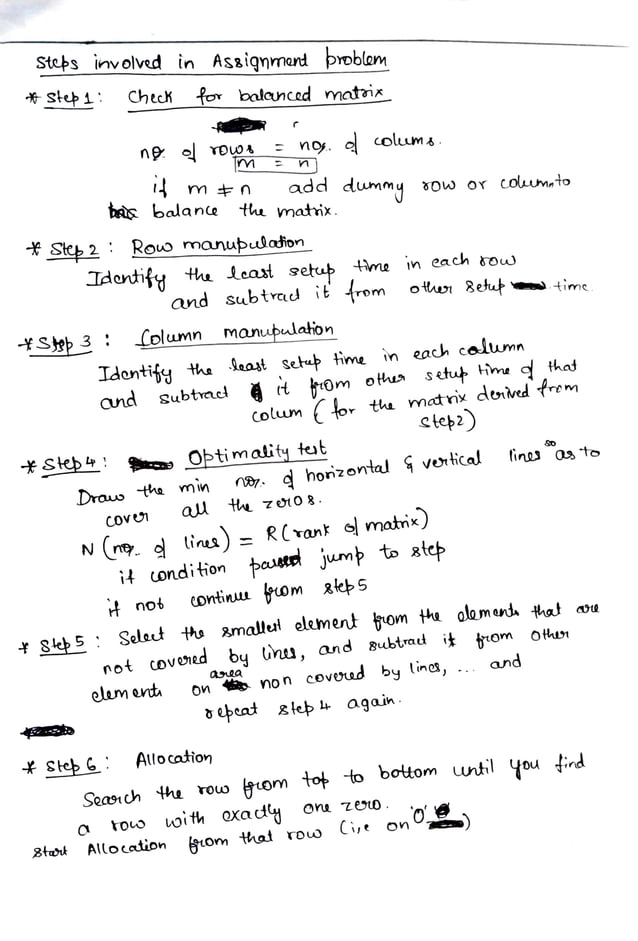 Steps involved in Assignment problem
* Step 1: Check for balanced matrix
no. of rows = nos. of colums.
m = n
if m ≠ n add dummy row or column to
balance the matrix.
* Step 2: Row manupulation
Identify the least setup time in each row
and subtract it from other setup time.
* Step 3: Column manupulation
Identify the least setup time in each column
and subtract it from other setup time of that
colum (for the matrix derived from
step2)
* Step 4: Optimality test
Draw the min nos. of horizontal & vertical lines so as to
cover all the zeros.
N (nos. of lines) = R (rank of matrix)
if condition passed jump to step
if not continue from step 5
* Step 5: Select the smallest element from the elements that are
not covered by lines, and subtract it from other
elements on area non covered by lines, ... and
repeat step 4 again.
* Step 6: Allocation
Search the row from top to bottom until you find
a row with exactly one zero.
Start Allocation from that row (i,e on '0')